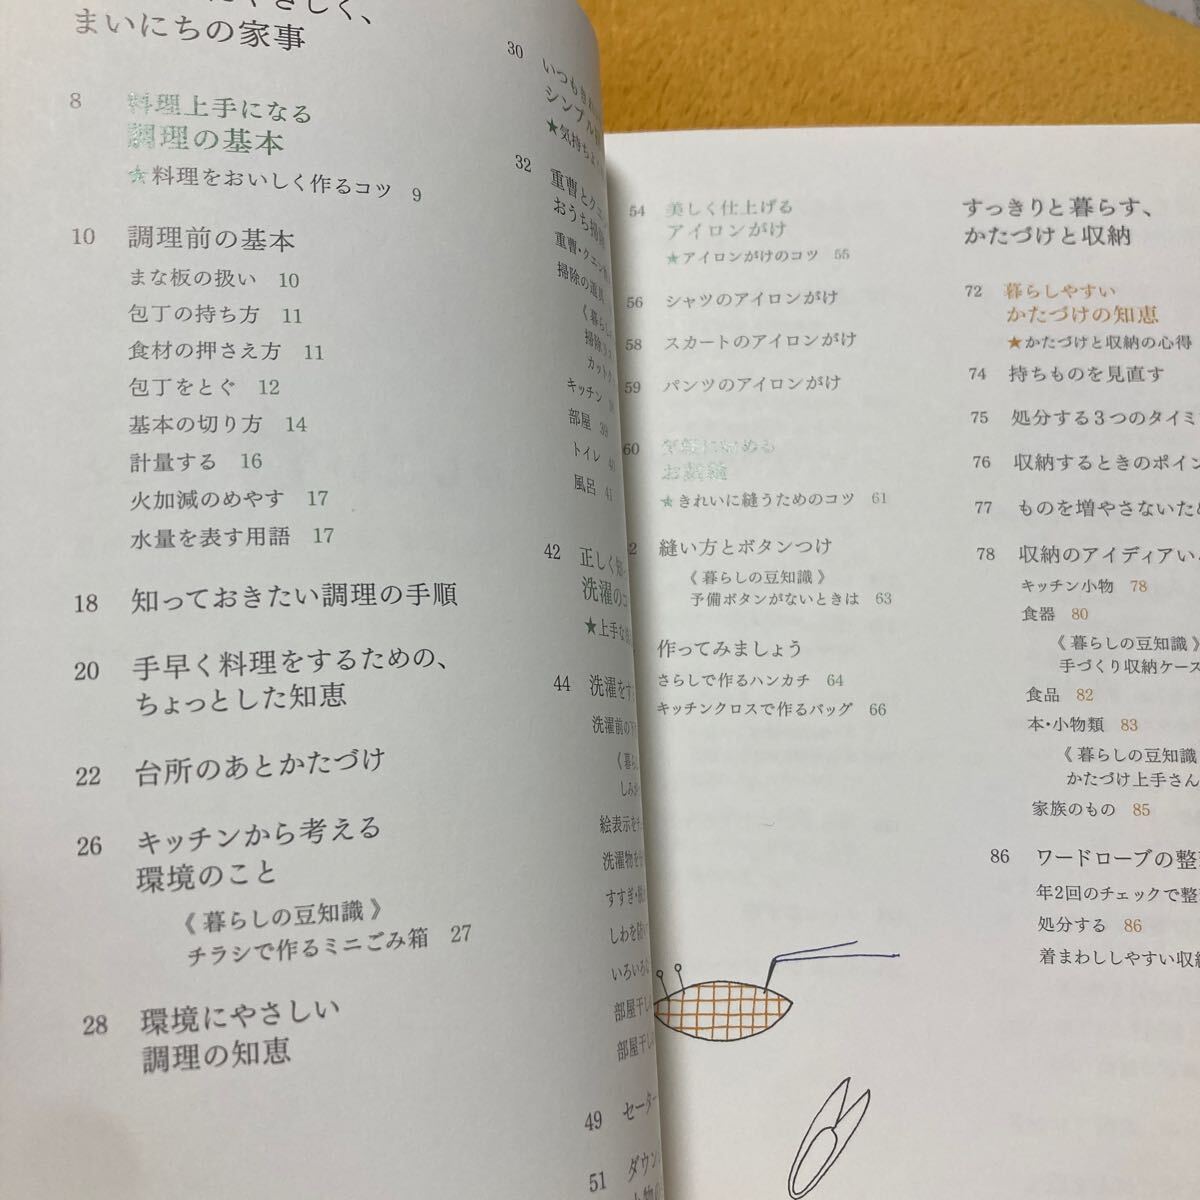 まいにちの家事
8 料理上手になる
調理の基本
★料理をおいしく作るコツ 9
10 調理前の基本
まな板の扱い 10
包丁の持ち方 11
食材の押さえ方 11
包丁をとぐ 12
基本の切り方 14
計量する 16
火加減のめやす 17
水量を表す用語 17
18 知っておきたい調理の手順
20 手早く料理をするための、
ちょっとした知恵
22 台所のあとかたづけ
26 キッチンから考える
環境のこと
《暮らしの豆知識》
チラシで作るミニごみ箱 27
28 環境にやさしい
調理の知恵
30 いつもきれ
シンプル
★気持ちよ
32 重曹とクエン
おうち掃
重曹・クエン
掃除の道具
《暮らし
キッチン
部屋 39
トイレ 40
風呂 41
42 正しく知
洗濯の
★上手な
44 洗濯を
洗濯前の
《暮
しみ
絵表示を
洗濯物を
すすぎ・
しわを
いろいろ
部屋干し
部屋干し
49 セーター
51 ダウン
小物の
54 美しく仕上げる
アイロンがけ
★アイロンがけのコツ 55
56 シャツのアイロンがけ
58 スカートのアイロンがけ
59 パンツのアイロンがけ
60 気軽に始める
お裁縫
★きれいに縫うためのコツ 61
縫い方とボタンつけ
《暮らしの豆知識》
予備ボタンがないときは 63
作ってみましょう
さらしで作るハンカチ 64
キッチンクロスで作るバッグ 66
すっきりと暮らす、
かたづけと収納
72 暮らしやすい
かたづけの知恵
★かたづけと収納の心得
74 持ちものを見直す
75 処分する3つのタイミ
76 収納するときのポイン
77 ものを増やさないため
78 収納のアイディアい
キッチン小物 78
食器 80
《暮らしの豆知識》
手づくり収納ケース
食品 82
本・小物類 83
《暮らしの豆知識
かたづけ上手さん
家族のもの 85
86 ワードローブの整
年2回のチェックで整
処分する 86
着まわししやすい収納